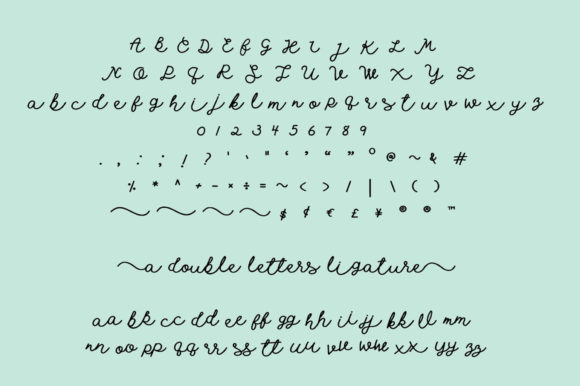 A B C D E F G H I J K L M
N O P Q R S T U V W X Y Z
a b c d e f g h i j k l m n o p q r s t u v w x y z
0 1 2 3 4 5 6 7 8 9
. , : ; ! ? ' ' " ‘ ’ “ ” ° @ ~ & #
% * ^ + - × ÷ = ~ < > / | \ ( )
$ ¢ € £ ¥ © ® ™
a double letters ligature
aa bb cc dd ee ff gg hh ii jj kk ll mm
nn oo pp qq rr ss tt uu vv ww xx yy zz